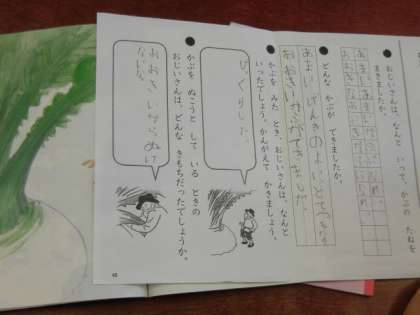 ● おじいさんは、なんと いって、かぶの たねを
まきましたか。
● どんな かぶが できましたか。
あまい げんきのよい とてつもなく
おおきい かぶができました。
● かぶを みた とき、おじいさんは、なんと
いったでしょう。かんがえて かきましょう。
びっくりした。
● かぶを ぬこうと して いる ときの
おじいさんは、どんな きもちだったでしょうか。
おおきいからぬけ
ないな